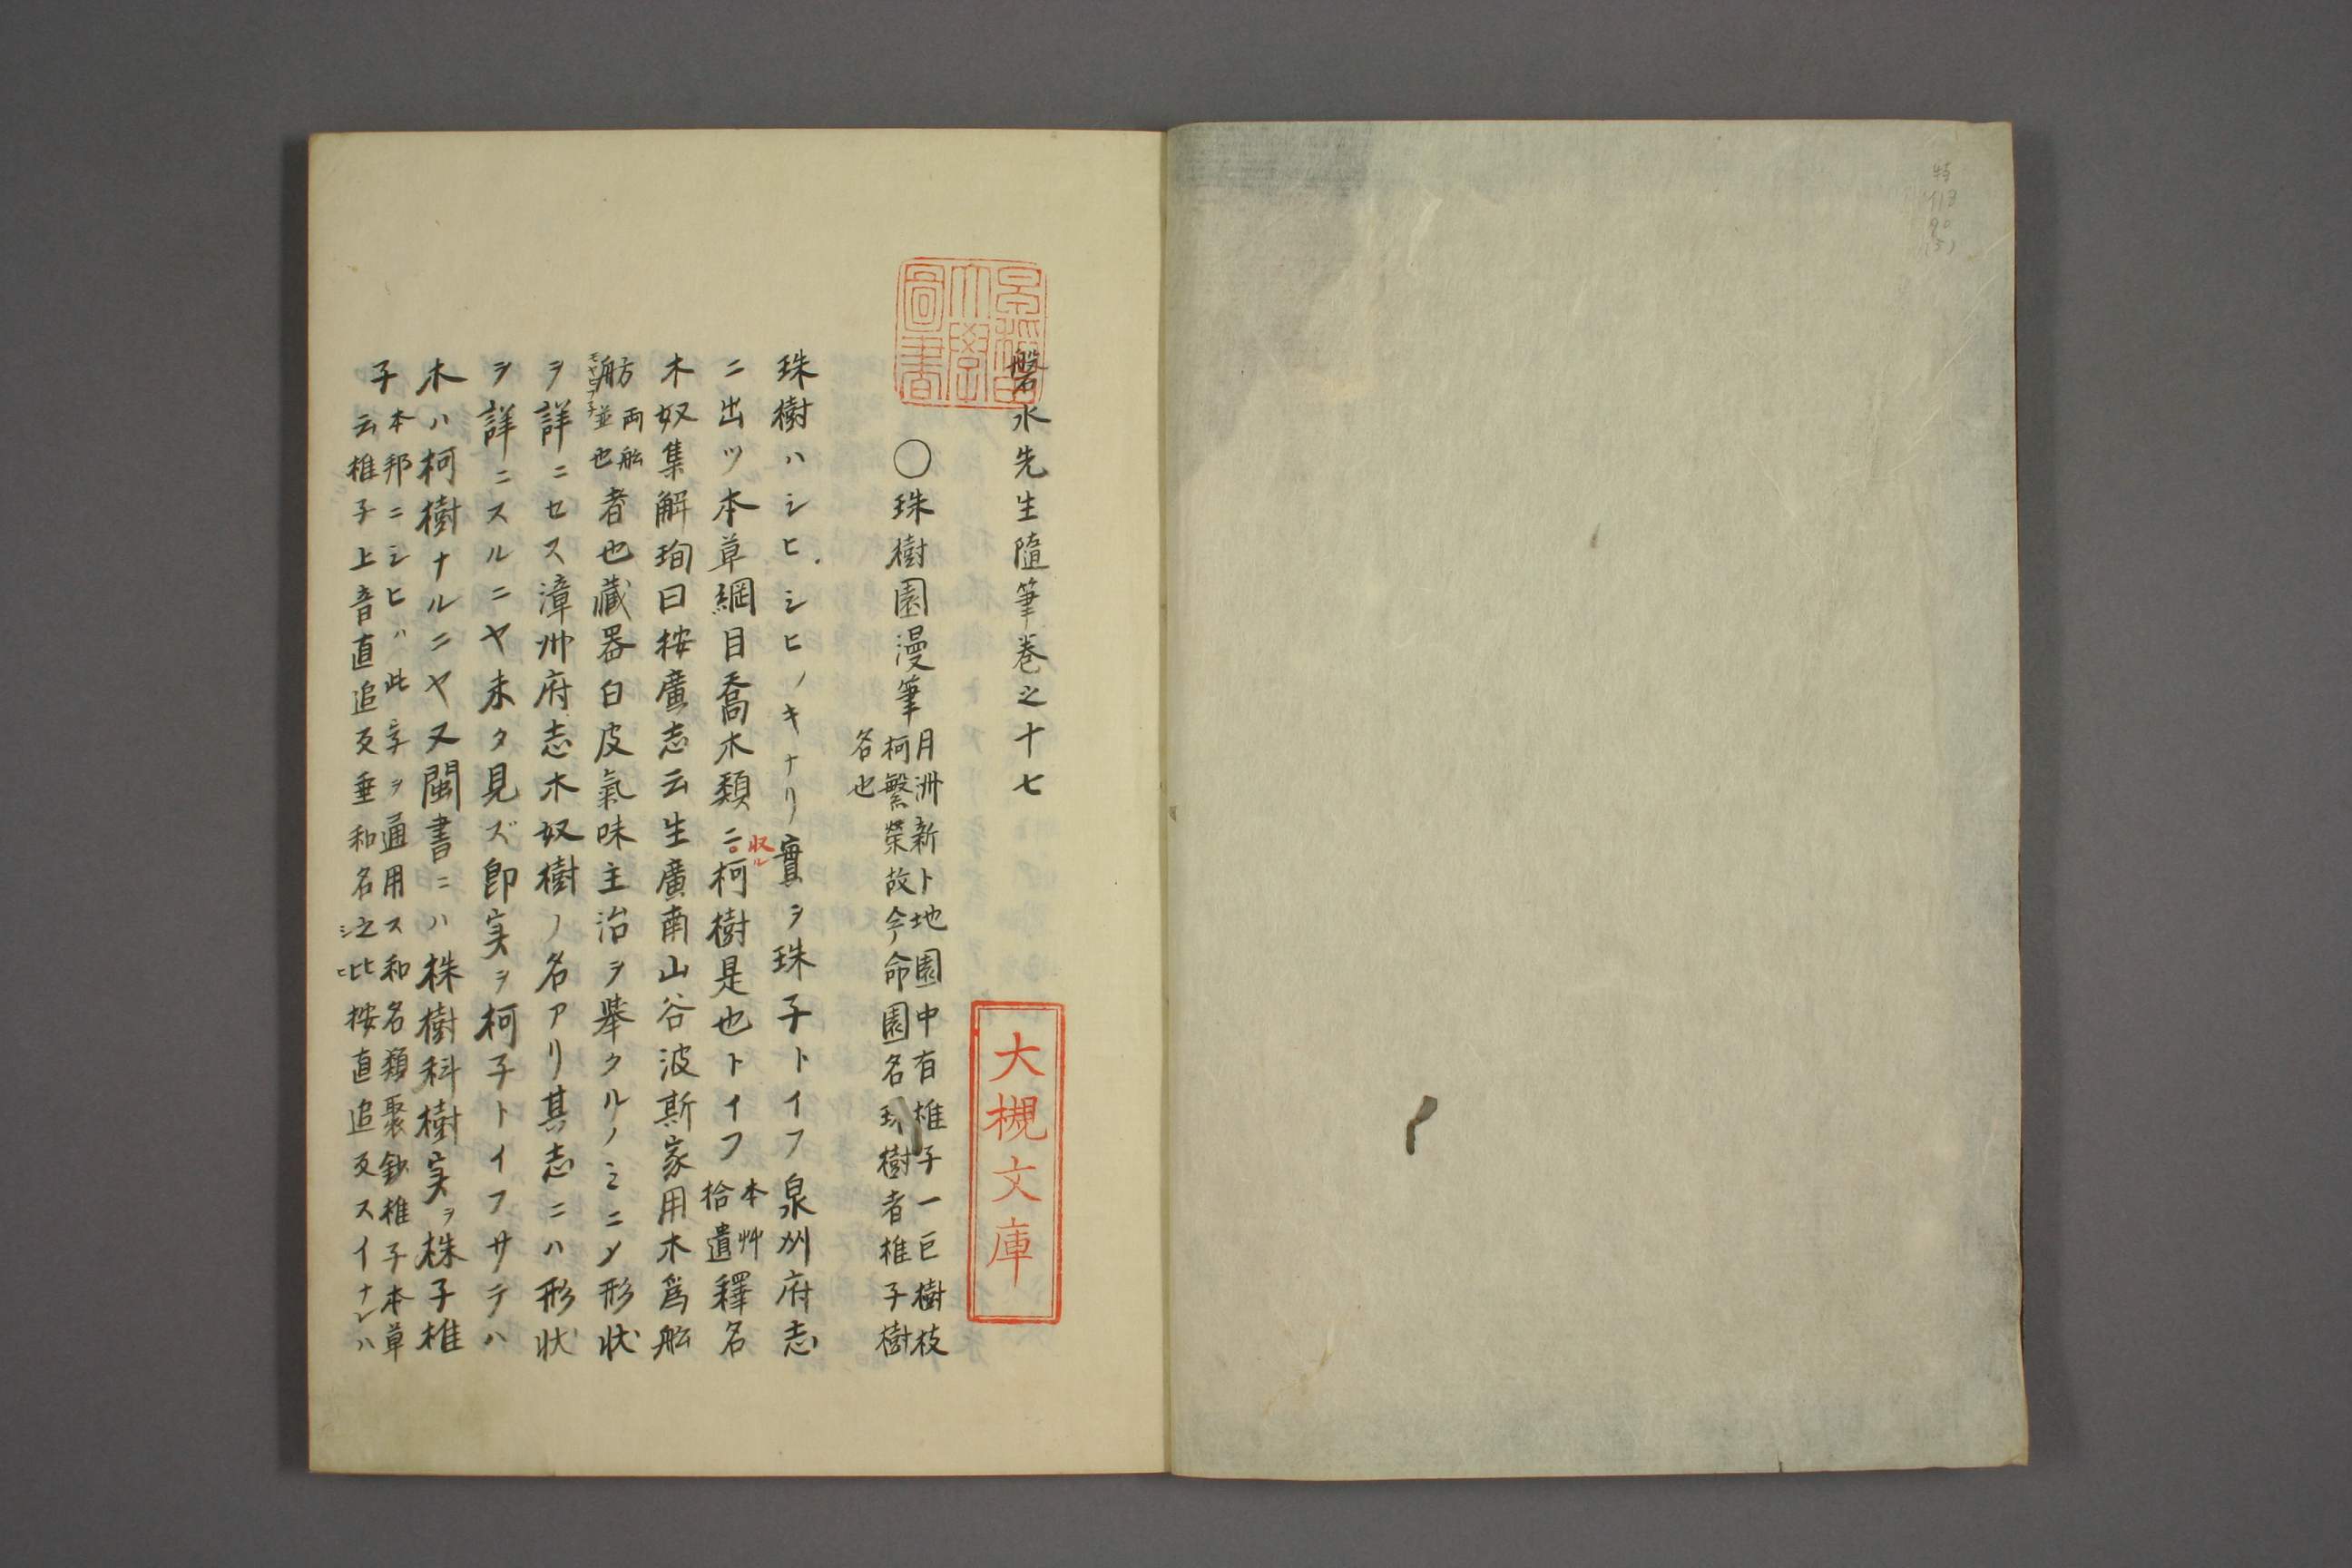 磐水先生隨筆巻之十七
〇珠樹園漫筆
月洲新卜地園中有椎子一巨樹枝
柯繁栄故今命園名珠樹者椎子樹
名也
珠樹ハシヒシヒノキナリ實ヲ珠子トイフ泉州府志
ニ出ツ本草綱目喬木類ニ柯樹是也トイフ本艸拾遺釋名
収ル
木奴集解珣曰桉廣志云生廣南山谷波斯家用木為舩
舫方両舩並也者也藏器白皮氣味主治ヲ擧クルノミニメ形状
ヲ詳ニセス漳州府志木奴樹ノ名アリ其志ニハ形状
ヲ詳ニスルニヤ未タ見ズ即実ヲ柯子トイフサテハ
木ハ柯樹ナルニヤ又閩書ニハ株樹科樹実ヲ株子椎
子本邦ニシヒハ此字ヲ通用ス和名類聚鈔椎子本草
云椎子上音直追反垂和名之比桉直追反スイナレハ
シヒ
大槻文庫
圖書
特